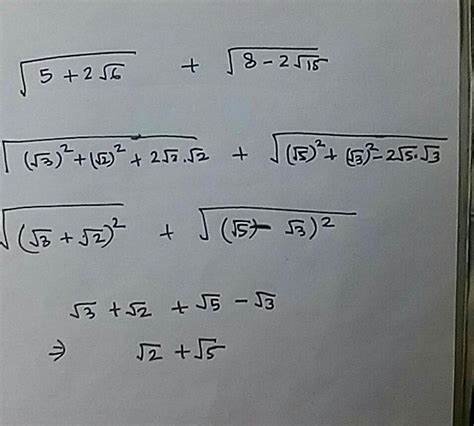 √(5 + 2√6) + √(8 - 2√15)
√((√3)² + (√2)² + 2√3.√2) + √((√5)² + (√3)² - 2√5.√3)
√((√3 + √2)²) + √((√5 - √3)²)
√3 + √2 + √5 - √3
⇒ √2 + √5